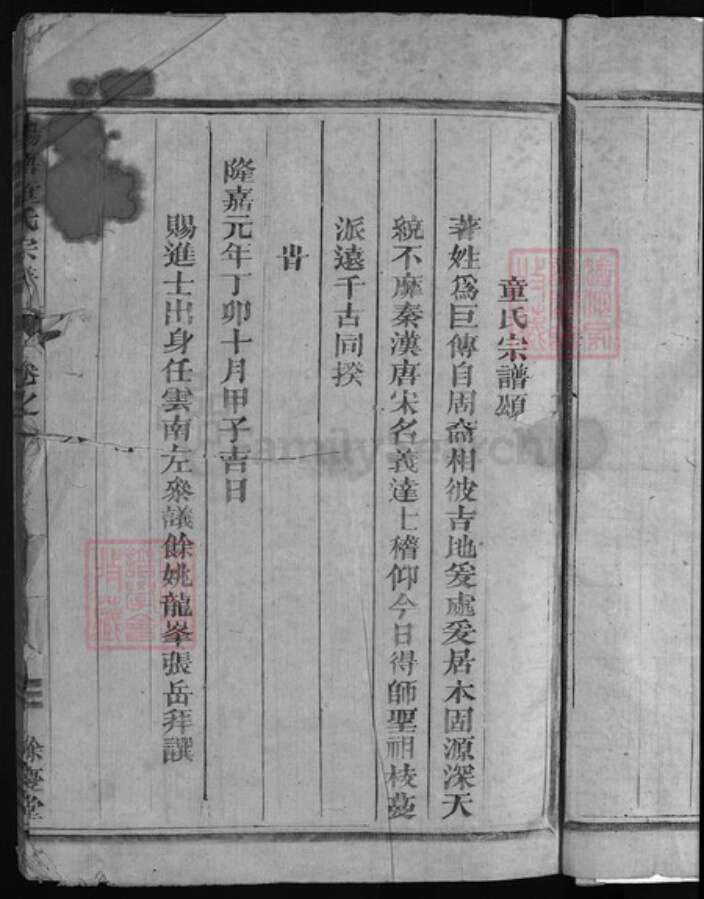 童氏宗譜頌
著姓爲巨傳自周裔相彼吉地爰處爰居木固源深天
統不靡秦漢唐宋名義達士稽仰今日得師聖祖枝蔓
派遠千古同揆
旹
隆嘉元年丁卯十月甲子吉日
賜進士出身任雲南左叅議餘姚龍峯張岳拜譔
童氏宗譜 卷之
餘慶堂
FamilySearch